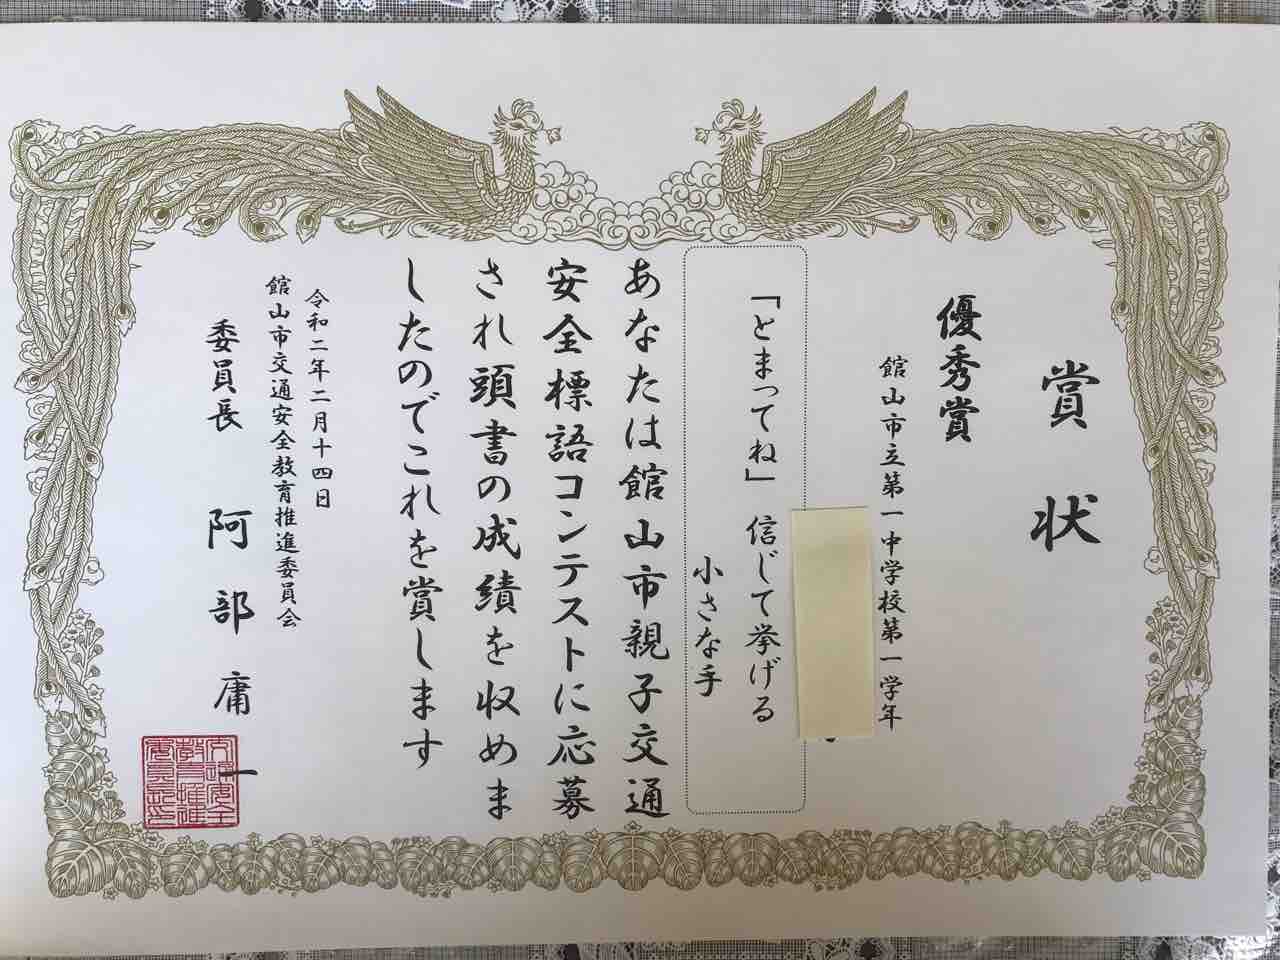 賞状
優秀賞
館山市立第一中学校第一学年
「とまってね」信じて挙げる
小さな手
あなたは館山市親子交通
安全標語コンテストに応募
され頭書の成績を収めま
したのでこれを賞します
令和二年二月十四日
館山市交通安全教育推進委員会
委員長 阿部庸一